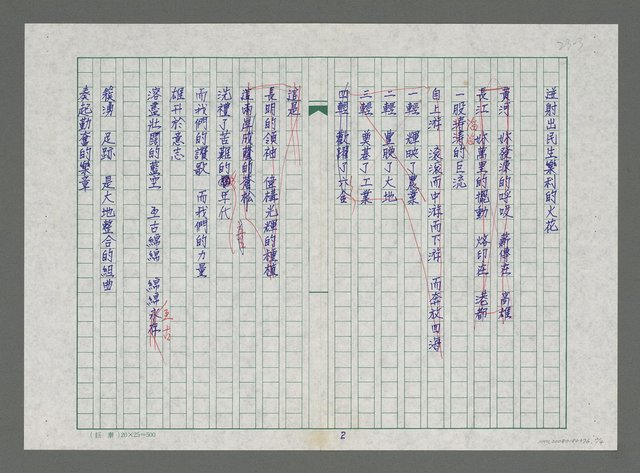 逆射出民生樂利的火花
黃河 妳發源的呼吸 薪傳在 高雄
長江 妳萬里的擺動 烙印在 港都
一股滔滔的巨流
自上游 滾滾而中游而下游 而奔放四海
一輕 輝映了農業
二輕 豐映了大地
三輕 奠基了工業
四輕 歡躍了六合
這是
長明的領袖 偉構光輝的種植
這兩岸欣馥的蒼松
洗禮了苦難的年代
而我們的讚歌 而我們的力量
雄升於意志
溶盡壯闊的藍空 亙古綿綿 綿綿永存
亙古
簇湧 足跡 是大地整合的組曲
奏起動奮的樂章
23-3
2
20×25=500